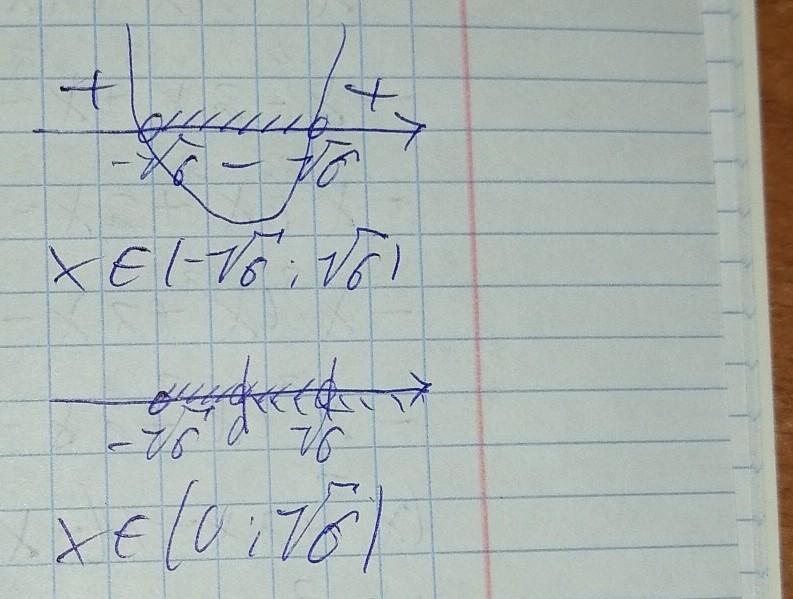 + +
-√6 − √6
x ∈ (-√6 ; √6)
-√6 0 √6
x ∈ (0 ; √6)